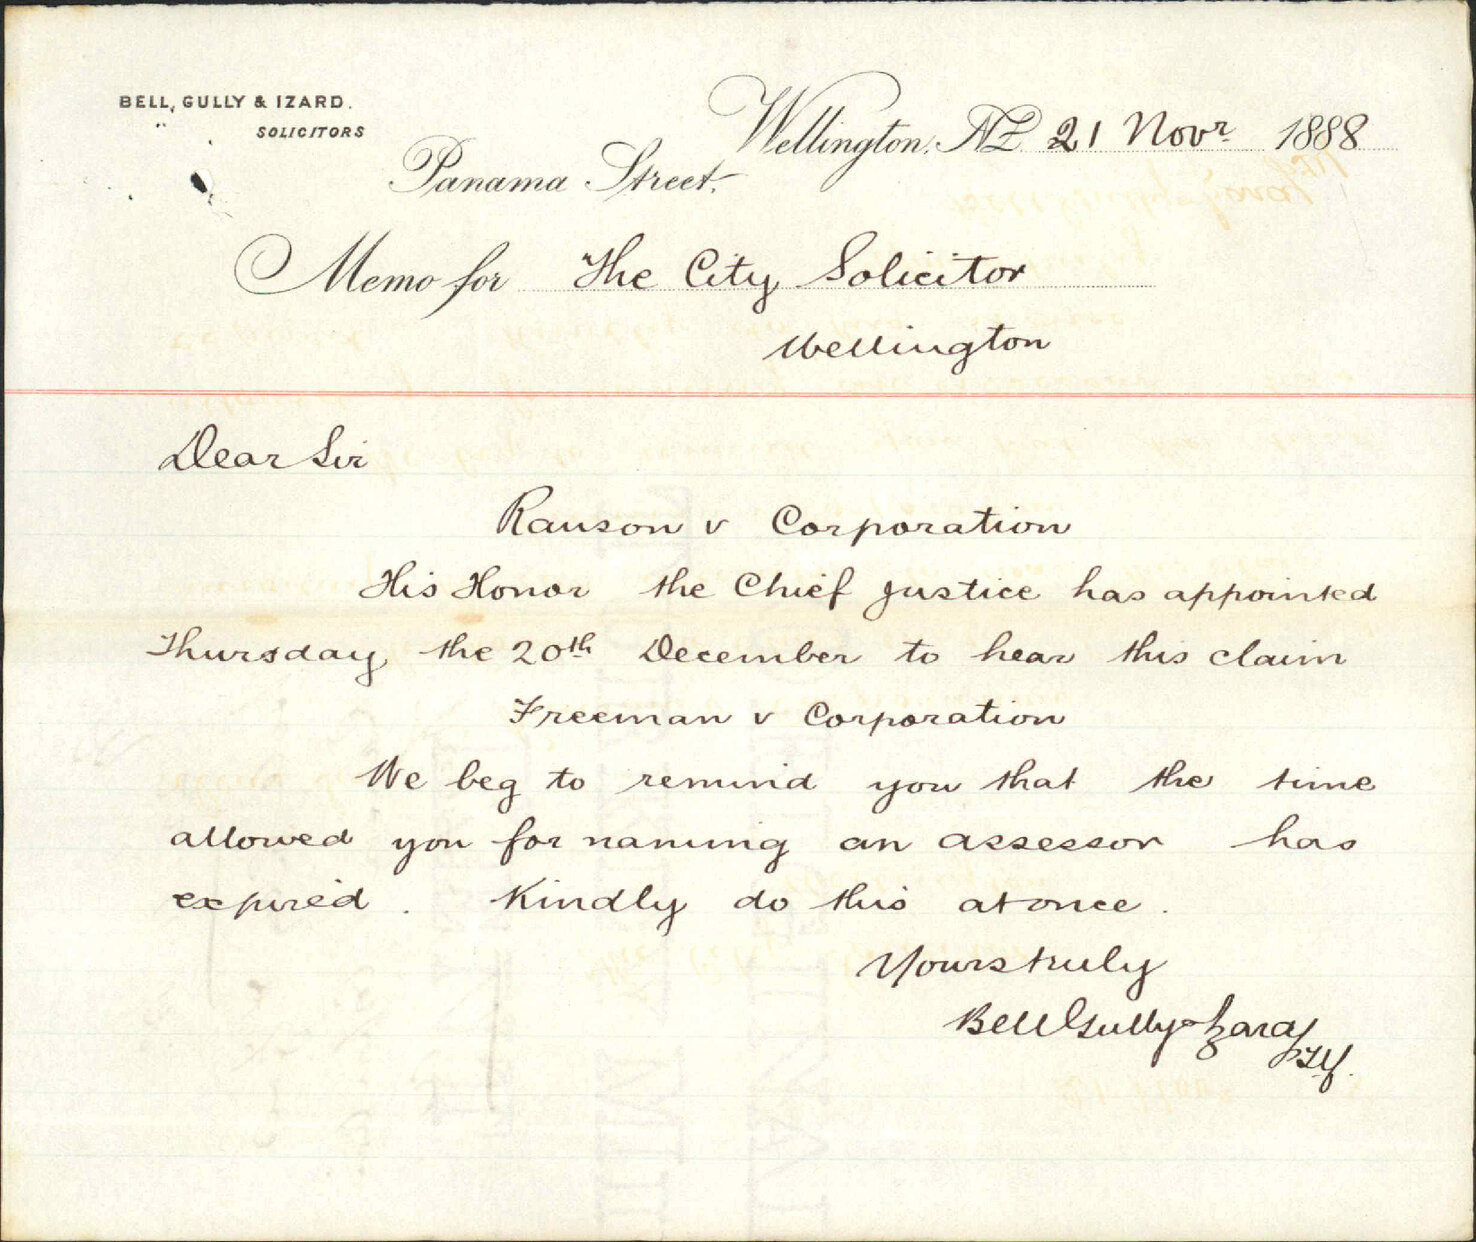 BELL, GULLY & IZARD.
SOLICITORS
Wellington, NZ 21 Novr 1888
Panama Street.
Memo for The City Solicitor
Wellington
Dear Sir
Ranson v Corporation
His Honor the Chief Justice has appointed
Thursday the 20th December to hear this claim
Freeman v Corporation
We beg to remind you that the time
allowed you for naming an assessor has
expired. Kindly do this at once.
Yours truly
Bell Gully & Izard